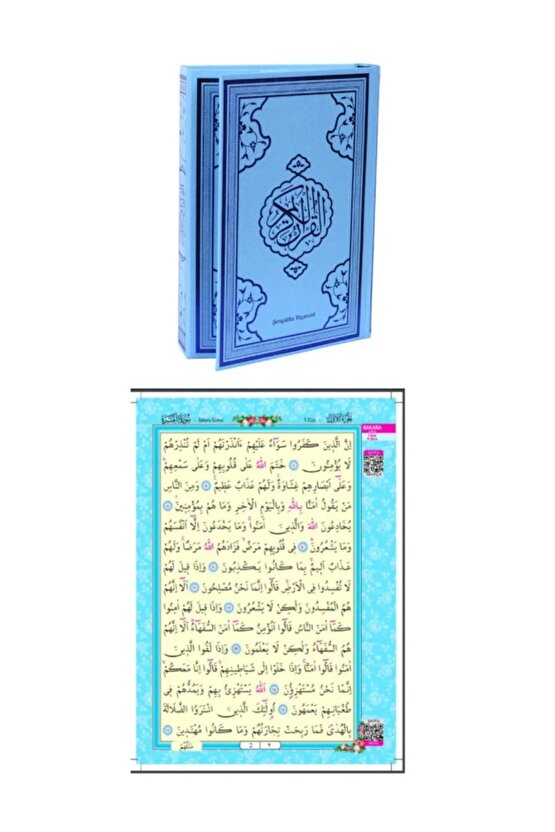 القرآن الكريم
Yayınevi
سُورَةُ الْبَقَرَةِ - Bakara Suresi
1.Cüz - اَلْجُزْءُ الْاَوَّلُ
BAKARA
اِنَّ الَّذ۪ينَ كَفَرُوا سَوَٓاءٌ عَلَيْهِمْ ءَاَنْذَرْتَهُمْ اَمْ لَمْ تُنْذِرْهُمْ
لَا يُؤْمِنُونَ ﴿٦﴾ خَتَمَ اللّٰهُ عَلٰى قُلُوبِهِمْ وَعَلٰى سَمْعِهِمْ
وَعَلٰٓى اَبْصَارِهِمْ غِشَاوَةٌ وَلَهُمْ عَذَابٌ عَظ۪يمٌ ﴿٧﴾ وَمِنَ النَّاسِ
مَنْ يَقُولُ اٰمَنَّا بِاللّٰهِ وَبِالْيَوْمِ الْاٰخِرِ وَمَا هُمْ بِمُؤْمِن۪ينَ ﴿٨﴾
يُخَادِعُونَ اللّٰهَ وَالَّذ۪ينَ اٰمَنُوا وَمَا يَخْدَعُونَ اِلَّٓا اَنْفُسَهُمْ
وَمَا يَشْعُرُونَ ﴿٩﴾ ف۪ي قُلُوبِهِمْ مَرَضٌ فَزَادَهُمُ اللّٰهُ مَرَضًا وَلَهُمْ
عَذَابٌ اَل۪يمٌ بِمَا كَانُوا يَكْذِبُونَ ﴿١٠﴾ وَاِذَا ق۪يلَ لَهُمْ
لَا تُفْسِدُوا فِي الْاَرْضِ قَالُٓوا اِنَّمَا نَحْنُ مُصْلِحُونَ ﴿١١﴾ اَلَٓا اِنَّهُمْ
هُمُ الْمُفْسِدُونَ وَلٰكِنْ لَا يَشْعُرُونَ ﴿١٢﴾ وَاِذَا ق۪يلَ لَهُمْ اٰمِنُوا
كَمَٓا اٰمَنَ النَّاسُ قَالُٓوا اَنُؤْمِنُ كَمَٓا اٰمَنَ السُّفَهَٓاءُ اَلَٓا اِنَّهُمْ
هُمُ السُّفَهَٓاءُ وَلٰكِنْ لَا يَعْلَمُونَ ﴿١٣﴾ وَاِذَا لَقُوا الَّذ۪ينَ
اٰمَنُوا قَالُٓوا اٰمَنَّا وَاِذَا خَلَوْا اِلٰى شَيَاط۪ينِهِمْ قَالُٓوا اِنَّا مَعَكُمْ
اِنَّمَا نَحْنُ مُسْتَهْزِؤُ۫نَ ﴿١٤﴾ اَللّٰهُ يَسْتَهْزِئُ بِهِمْ وَيَمُدُّهُمْ ف۪ي
طُغْيَانِهِمْ يَعْمَهُونَ ﴿١٥﴾ اُو۬لٰٓئِكَ الَّذ۪ينَ اشْتَرَوُا الضَّلَالَةَ
بِالْهُدٰى فَمَا رَبِحَتْ تِجَارَتُهُمْ وَمَا كَانُوا مُهْتَد۪ينَ ﴿١٦﴾
2 ٢
مَثَلُهُمْ